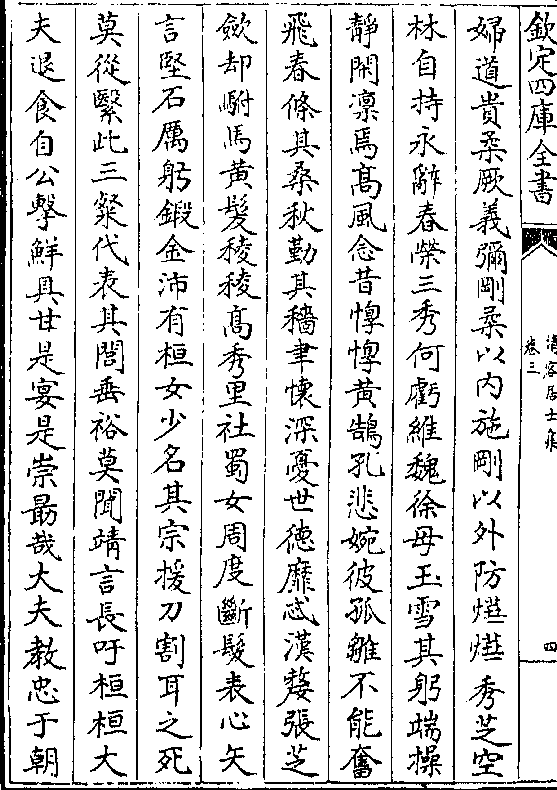 欽定四庫全書
清容居士集
卷三
四
婦道貴柔厥義彌剛柔以内施剛以外防熚熚秀芝空
林自持永辭春榮三秀何虧維魏徐母玉雪其躬端操
靜閑凛焉髙風念昔惸惸黄鵠孔悲婉彼孤雛不能奮
飛春條其桑秋勤其穡聿懷深憂世德靡忒漢嫠張芝
斂却駙馬黄髮稜稜髙秀里社蜀女周度斷髮表心矢
言堅石厲躬鍛金沛有桓女少名其宗援刀割耳之死
莫從繄此三粲代表其閭垂裕莫聞靖言長吁桓桓大
夫退食自公擊鮮具甘是宴是崇最哉大夫教忠于朝